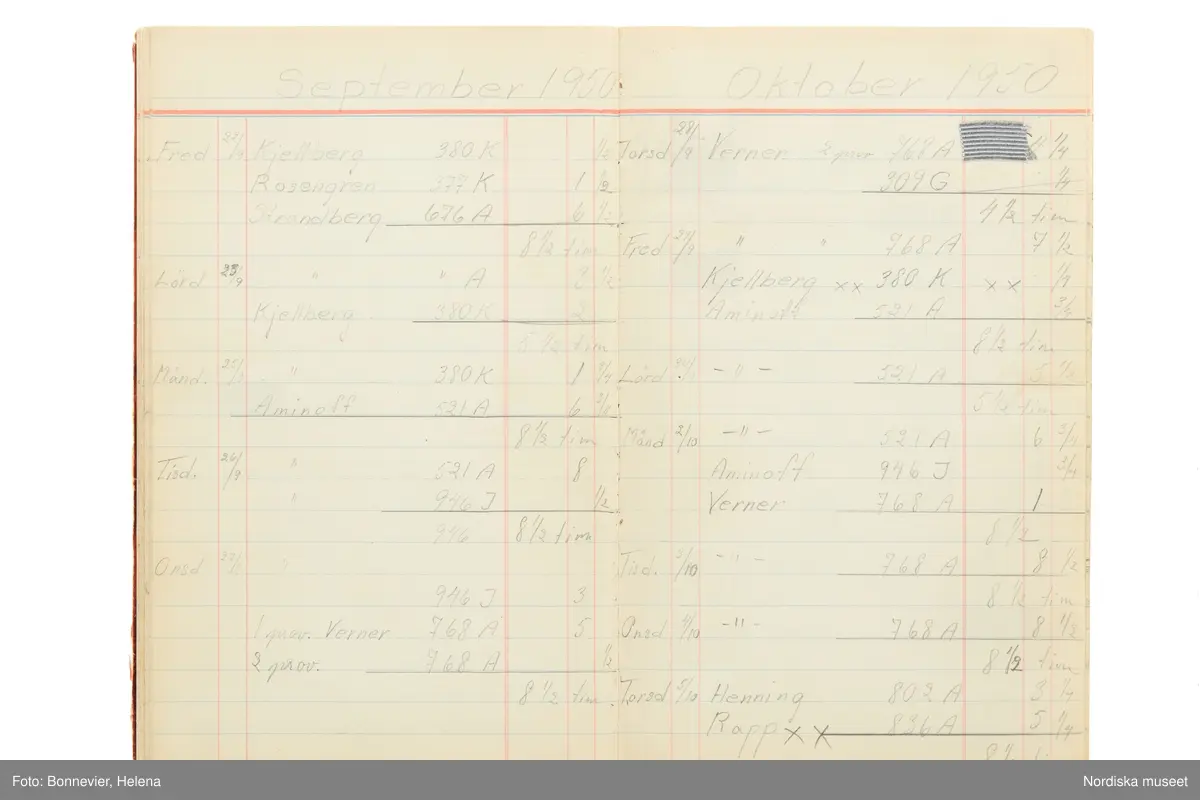 September 1950
Fred 22/9 Kjellberg 380 K 1/2
Rosengren 377 K 1 1/2
Strandberg 676 A 6 1/2
8 1/2 tim
Lörd 23/9 " " A 3 1/2
Kjellberg 380 K 2
5 1/2 tim
Månd. 25/9 " 380 K 1 3/4
Aminoff 521 A 6 3/4
8 1/2 tim
Tisd. 26/9 " 521 A 8
" 946 J 1/2
946 8 1/2 tim
Onsd 27/9 "
946 J 3
1 prov. Verner 768 A 5
2 prov. 768 A 1/2
8 1/2 tim
Oktober 1950
Torsd 28/9 Verner 2 prov 768 A 4 1/4
309 G 1/4
4 1/2 tim
Fred 29/9 " " 768 A 7 1/2
Kjellberg xx 380 K xx 1/4
Aminoff 521 A 3/4
8 1/2 tim
Lörd 30/9 - " - 521 A 5 1/2
5 1/2 tim
Månd 2/10 - " - 521 A 6 3/4
Aminoff 946 J 3/4
Verner 768 A 1
8 1/2
Tisd. 3/10 - " - 768 A 8 1/2
8 1/2 tim
Onsd 4/10 - " - 768 A 8 1/2
8 1/2 tim
Torsd 5/10 Henning 802 A 3 1/4
Rapp xx 826 A 5 1/4
Foto: Bonnevier, Helena
Nordiska museet